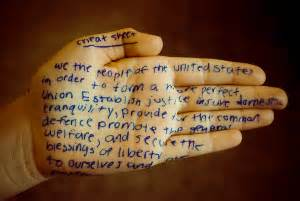 cheat sheet
we the people of the united states
in order to form a more perfect
union Establish justice insure domestic
tranquility, provide for the common
defence promote the general
welfare, and secure the
blessings of liberty
to ourselves and our